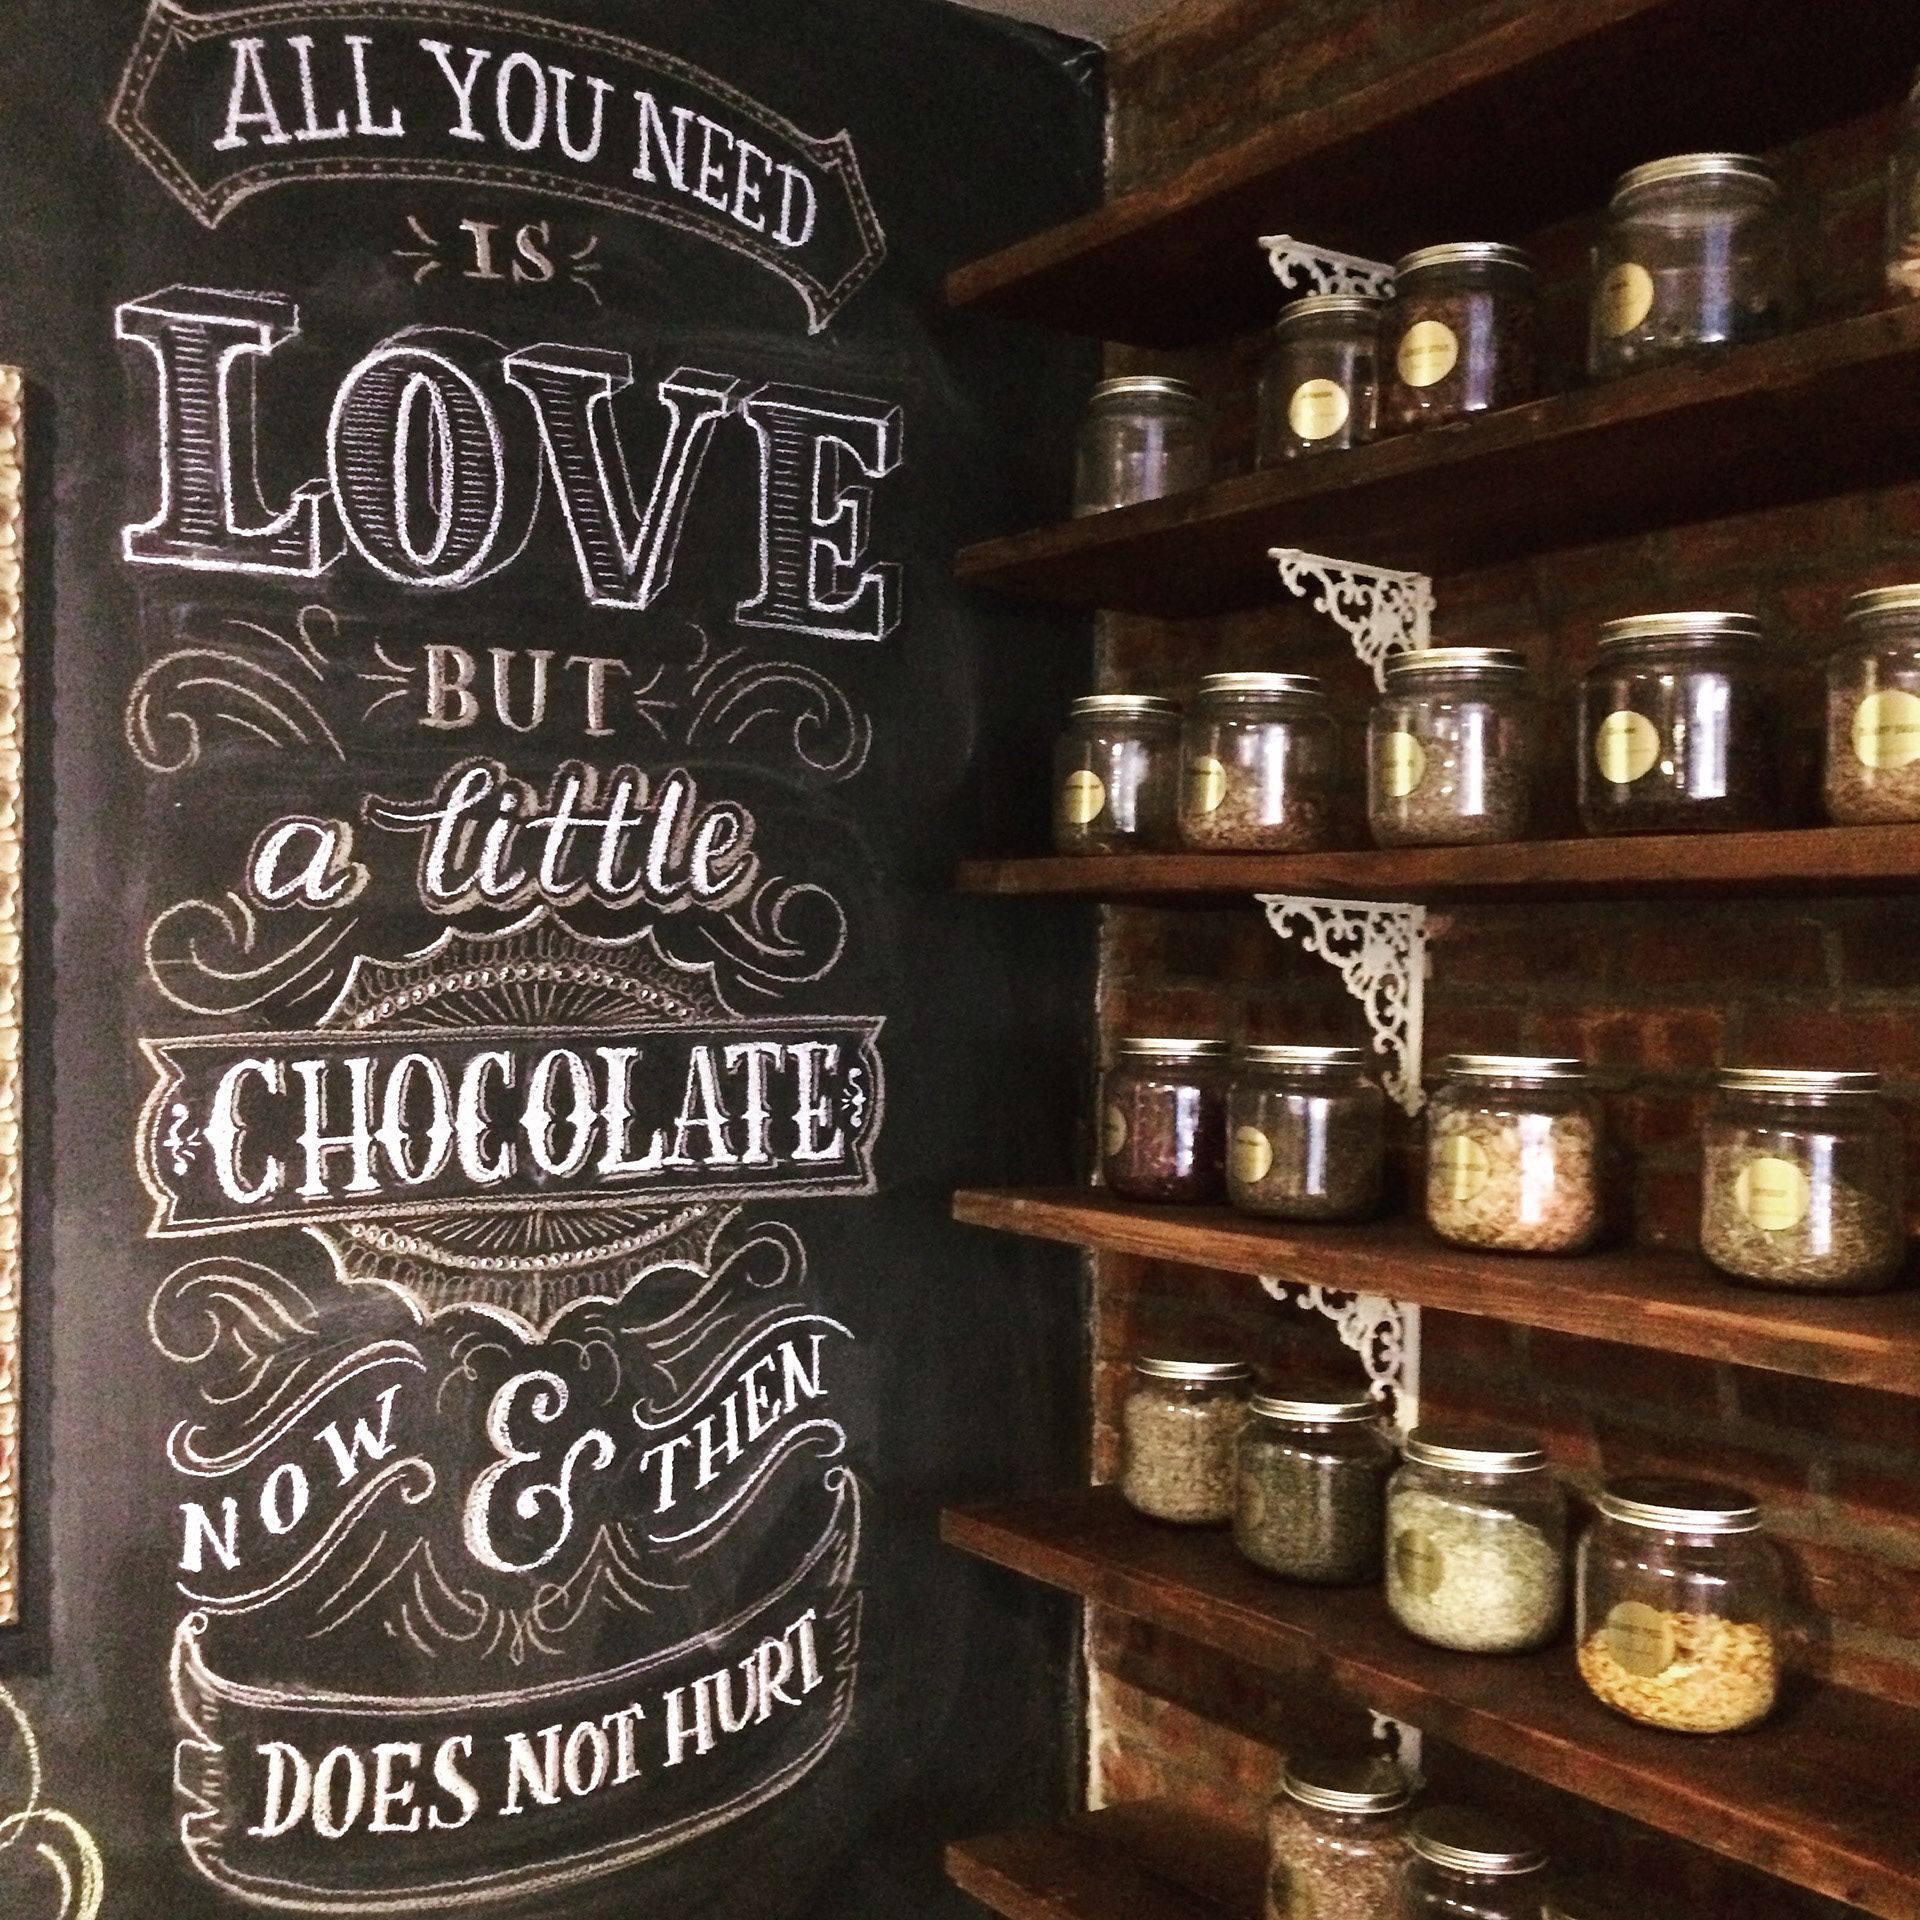 ALL YOU NEED
IS
LOVE
BUT
a little
CHOCOLATE
NOW & THEN
DOES NOT HURT